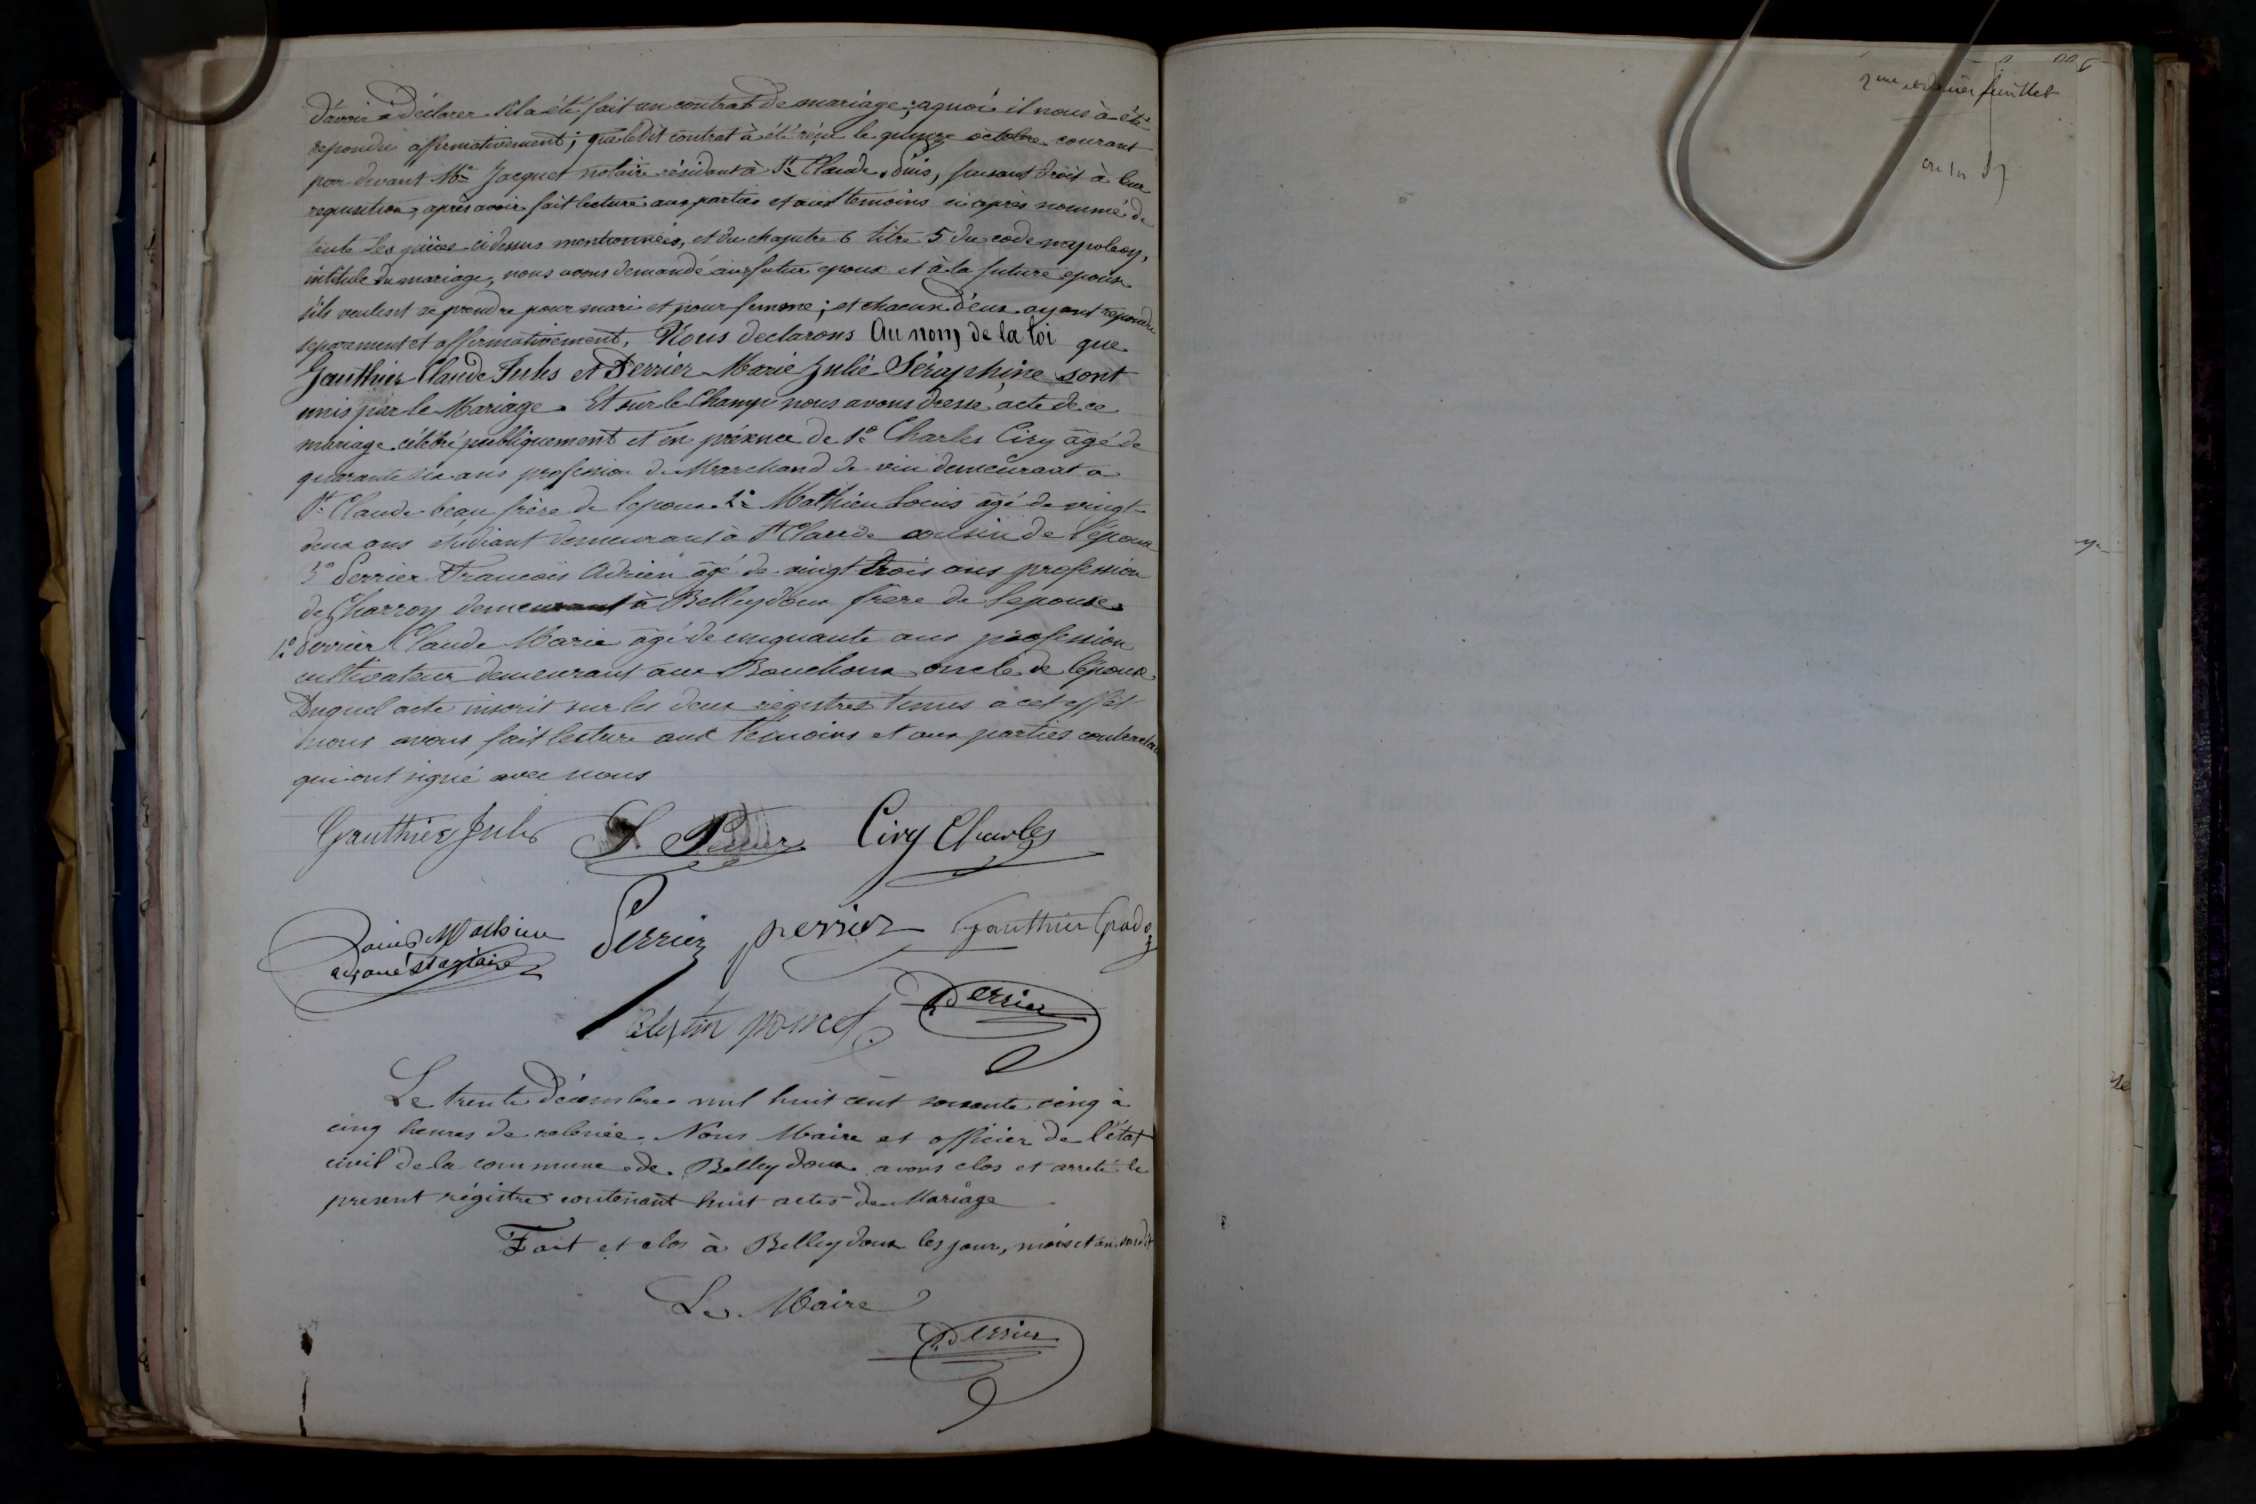 d'avoir à déclarer s'il a été fait un contrat de mariage; aquoi il nous à été
repondu affirmativement; que ledit contrat à été réçu le quinze octobre courant
par devant Me Jacquet notaire résidant à St Claude, puis, faisant droit à leur
requisition, après avoir fait lecture aux parties et aux temoins ci après nommé de
toute les pièces ci dessus mentionnées, et du chapitre 6 titre 5 du code napoleon,
intitulé du mariage, nous avons demandé au futur epoux et à la future epouse
s'ils veulent se prendre pour mari et pour femme; et chacun d'eux ayant repondu
separement et affirmativement, Nous declarons Au nom de la loi que
Gauthier Claude Jules et Perrier Marie Julie Séraphine sont
unis par le Mariage. Et sur le Champ nous avons dressé acte de ce
mariage célébré publiquement et en présence de 1o Charles Ciry âgé de
quarante six ans profession de Marchand de vin demeurant a
St Claude beau frère de lepoux 2o Mathieu Louis âgé de vingt
deux ans étudiant demeurant à St Claude cousin de l'épouse
3o Perrier François Adrien âgé de vingt trois ans profession
de Charron demeurant à Belleydoux frere de lepouse
4o Perrier Claude Marie âgé de cinquante ans profession
cultivateur demeurant aux Bouchoux oncle de l'épouse.
Duquel acte inscrit sur les deux régistres tenus a cet effet
nous avons fait lecture aux temoins et aux parties contractan
qui ont signé avec nous
Gauthier Jules S. Perrier Ciry Charles
Louis Mathieu Perrier perrier Gauthier
avoué stagiaire
Célestin poncet Perrier
Le trente Décembre mil huit cent soixante cinq à
cinq heures de relevée. Nous Maire et officier de l'état
civil de la commune de Belleydoux avons clos et arreté le
present régistre contenant huit actes de Mariage
Fait et clos à Belleydoux les jour, mois et an susdit
Le Maire
Perrier
2me et dernier feuillet